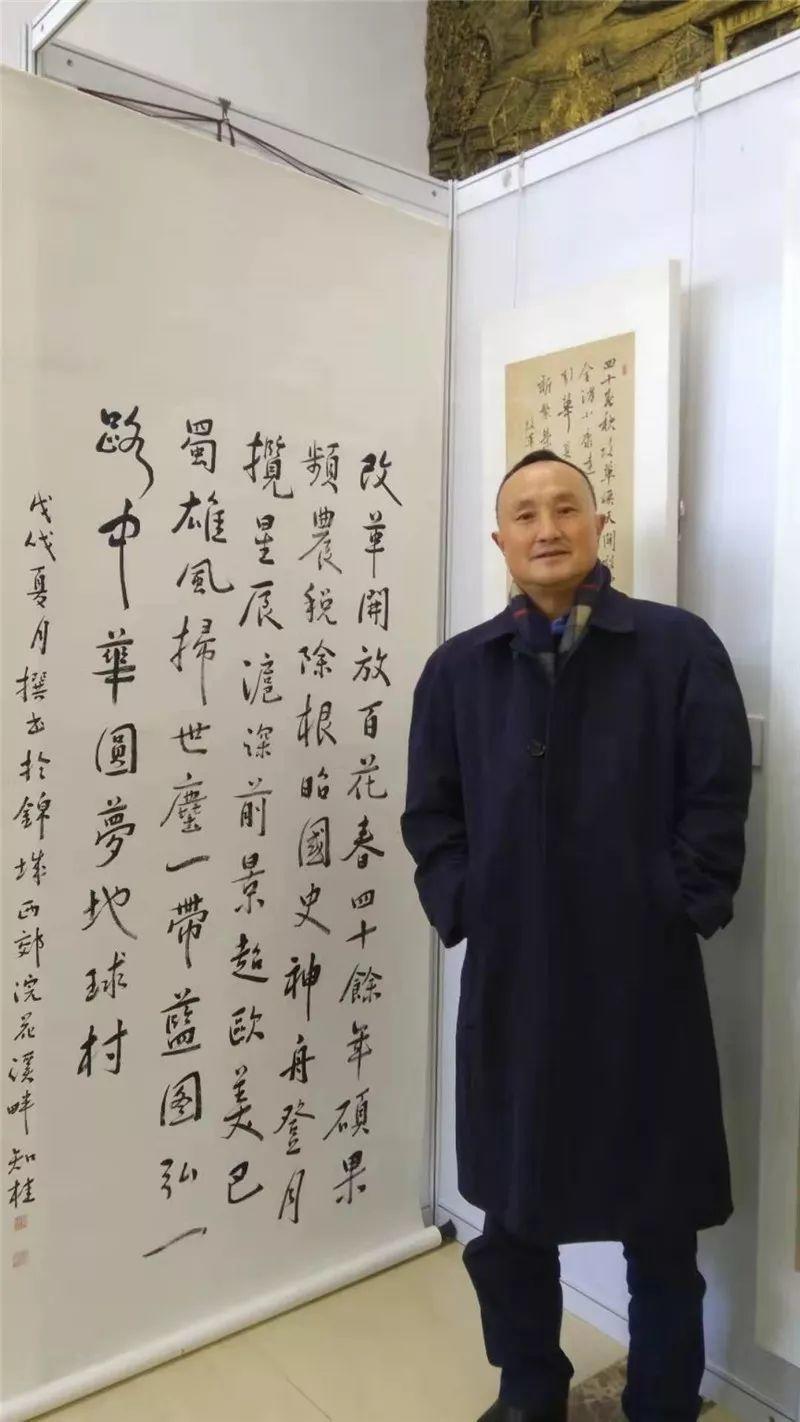 四十春秋改革煥天開
小康
華
改革開放百花春四十餘年碩果
頻農稅除根昭國史神舟登月
攬星辰滬深前景超歐美巴
蜀雄風掃世塵一帶藍图弘一
路中華圓夢地球村
戊戌夏月撰书於錦城西郊浣花溪畔知桂